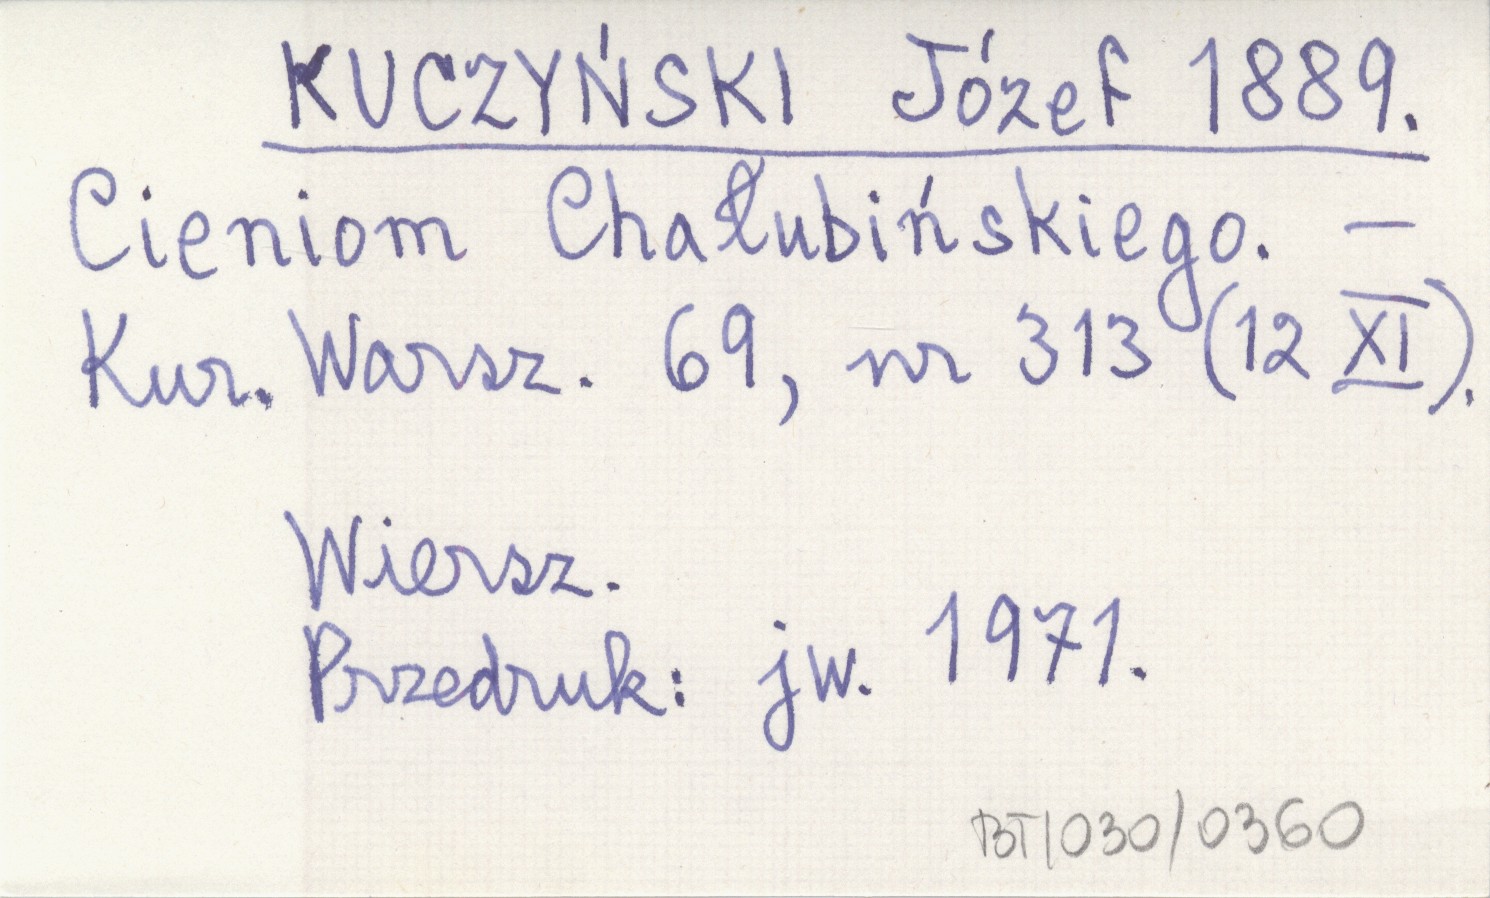 KUCZYŃSKI Józef 1889.
Cieniom Chałubińskiego. —
Kur. Warsz. 69, nr 313 (12 XI).
Wiersz.
Przedruk: jw. 1971.
BT/030/0360